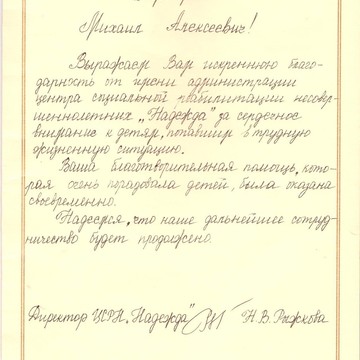 Михаил Алексеевич!
Выражаем Вам искреннюю благо-
дарность от имени администрации
центра социальной реабилитации несовер-
шеннолетних „Надежда" за сердечное
внимание к детям, попавшим в трудную
жизненную ситуацию.
Ваша благотворительная помощь, кото-
рая очень порадовала детей, была оказана
своевременно.
Надеемся, что наше дальнейшее сотруд-
ничество будет продолжено.
Директор ЦСРН „Надежда" Н.В. Рыжкова